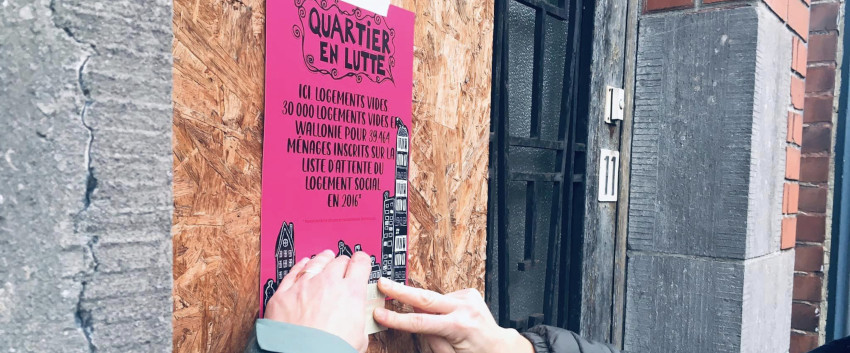 QUARTIER
EN LUTTE
ICI LOGEMENTS VIDES
30 000 LOGEMENTS VIDES EN
WALLONIE POUR 39 464
MÉNAGES INSCRITS SUR LA
LISTE D'ATTENTE DU
LOGEMENT SOCIAL
EN 2016"
11